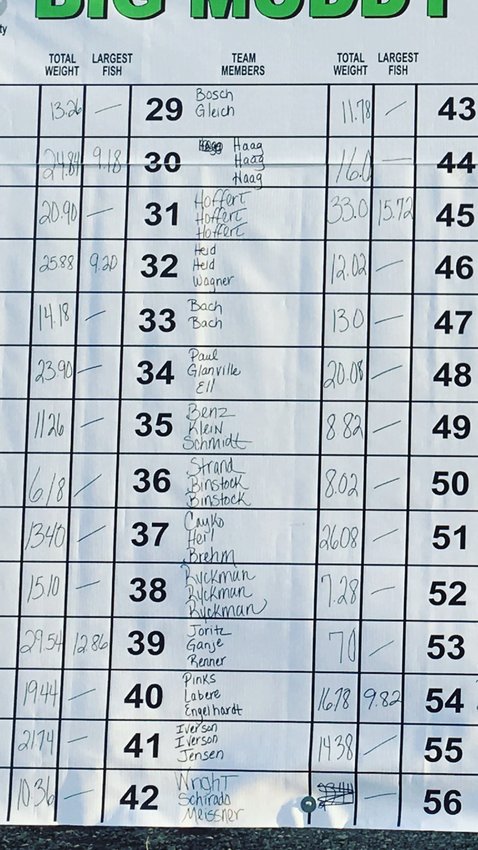 BIG MUDDY
ty
TOTAL WEIGHT LARGEST FISH TEAM MEMBERS TOTAL WEIGHT LARGEST FISH
13.26 — 29 Bosch 11.78 — 43
Gleich
24.84 9.18 30 Haag 16.0 — 44
Haag
Haag
20.90 — 31 Hoffert 33.0 15.72 45
Hoffert
Hoffert
25.88 9.20 32 Heid 12.02 — 46
Heid
Wagner
14.18 — 33 Bach 130 — 47
Bach
23.90 — 34 Paul 20.08 — 48
Glanville
Ell
1126 — 35 Benz 8.82 — 49
Klein
Schmidt
618 — 36 Strand 8.02 — 50
Binstock
Binstock
1340 — 37 Cayko 2608 — 51
Heil
Brehm
15.10 — 38 Ryckman 7.28 — 52
Ryckman
Ryckman
29.54 12.86 39 Joritz 70 — 53
Ganje
Renner
1944 — 40 Pinks 16.78 9.82 54
Labere
Engelhardt
2174 — 41 Iverson 1438 — 55
Iverson
Jensen
10.36 — 42 Wright — 56
Schirado
Meissner